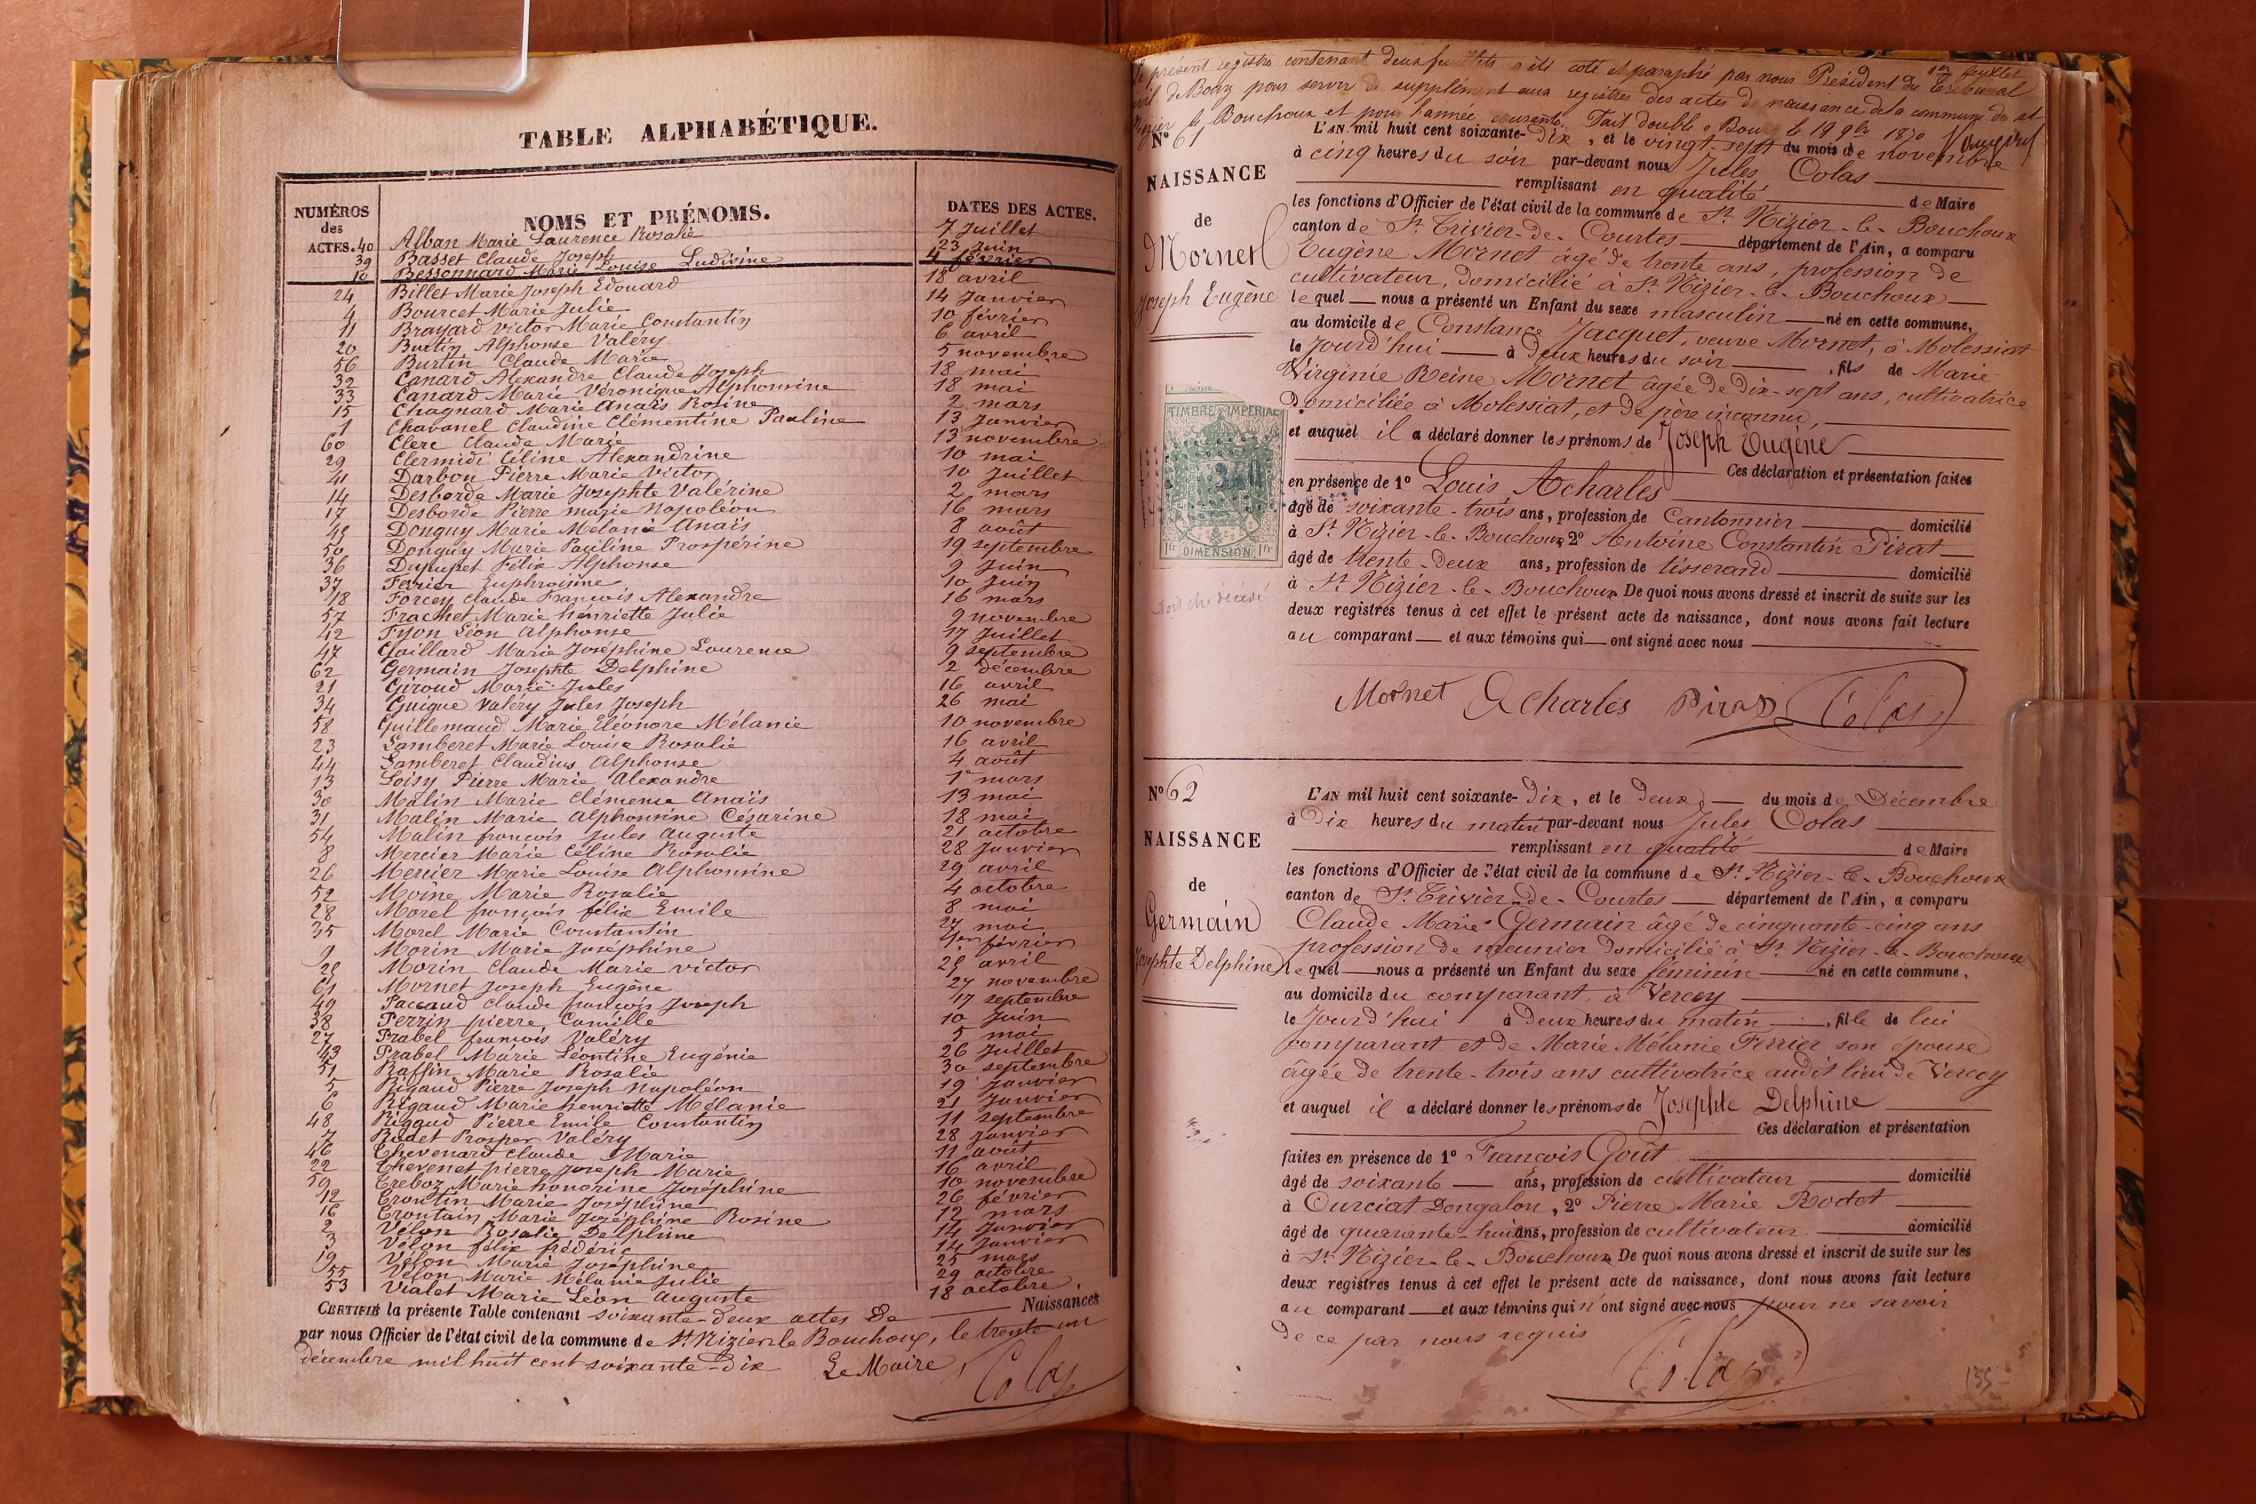 TABLE ALPHABÉTIQUE.
NUMÉROS des ACTES. NOMS ET PRÉNOMS. DATES DES ACTES.
40 Alban Marie Laurence Rosalie 7 Juillet
39 Basset Claude Joseph 23 Juin
10 Bessonnard Marie Louise Ludivine 4 février
24 Billet Marie Joseph Edouard 18 avril
4 Bourcet Marie Julie 14 Janvier
11 Brayard Victor Marie Constantin 10 février
20 Burtin Alphonse Valéry 6 avril
56 Burtin Claude Marie 5 novembre
32 Canard Alexandre Claude Joseph 18 mai
33 Canard Marie Véronique Alphonsine 18 mai
15 Chagnard Marie Anaïs Rosine 2 mars
1 Chavanel Claudine Clémentine Pauline 13 Janvier
60 Clerc Claude Marie 13 novembre
29 Clermidi Céline Alexandrine 10 mai
41 Darbon Pierre Marie Victor 10 Juillet
14 Desborde Marie Josephte Valérine 2 mars
17 Desborde Pierre marie Napoléon 16 mars
45 Donguy Marie Mélanie Anaïs 8 août
50 Donguy Marie Pauline Prospérine 19 septembre
36 Dupupet Félix Alphonse 9 Juin
37 Ferrier Euphroisine 10 Juin
18 Forcey Claude François Alexandre 16 mars
57 Frachet Marie henriette Julie 9 novembre
42 Fyon Léon Alphonse 17 Juillet
47 Gaillard Marie Joséphine Laurence 9 septembre
62 Germain Josephte Delphine 2 décembre
21 Giroud Marie Jules 16 avril
34 Guigue Valéry Jules Joseph 26 mai
58 Guillemaud Marie Eléonore Mélanie 10 novembre
23 Lamberet Marie Louise Rosalie 16 avril
44 Lamberet Claudius Alphonse 4 août
13 Loisy Pierre Marie Alexandre 1er mars
30 Malin Marie Clémence Anaïs 13 mai
31 Malin Marie Alphonsine Césarine 18 mai
54 Malin françois Jules Auguste 21 octobre
8 Mercier Marie Céline Rosalie 28 Janvier
26 Mercier Marie Louise Alphonsine 29 avril
52 Moine Marie Rosalie 4 octobre
28 Morel françois félix Emile 8 mai
35 Morel Marie Constantin 27 mai
9 Morin Marie Joséphine 1er février
25 Morin Claude Marie Victor 28 avril
61 Mornet Joseph Eugène 27 novembre
49 Paccaud Claude françois Joseph 17 septembre
38 Perrin pierre Camille 10 Juin
27 Prabel françois Valéry 5 mai
43 Prabel Marie Léontine Eugénie 26 Juillet
51 Raffin Marie Rosalie 30 septembre
5 Rigaud Pierre Joseph Napoléon 19 Janvier
6 Rigaud Marie henriette Mélanie 21 Janvier
48 Rigaud Pierre Emile Constantin 11 septembre
7 Rodet Prosper Valéry 28 Janvier
46 Thevenard Claude Marie 11 août
22 Thevenet pierre Joseph Marie 16 avril
59 Treboz Marie honorine Joséphine 10 novembre
12 Troutin Marie Joséphine 26 février
16 Troutain Marie Joséphine Rosine 12 mars
2 Vélon Rosalie Delphine 14 Janvier
3 Vélon félix frédéric 14 Janvier
19 Vélon Marie Joséphine 25 mars
55 Vélon Marie Mélanie Julie 29 octobre
53 Vialet Marie Léon Auguste 18 octobre
CERTIFIÉ la présente Table contenant soixante-deux actes De Naissances
par nous Officier de l'état civil de la commune de St Nizier le Bouchoux, le trente un
décembre mil huit cent soixante-Dix Le Maire
Colas
Le présent registre contenant deux feuillets a été coté et paraphé par nous Président du Tribunal
civil de Bourg pour servir de supplément aux registres des actes de naissance de la commune de st
Nizier le Bouchoux et pour l'année courante. Fait double à Bourg le 19 9bre 1870
N° 61
NAISSANCE
de
Mornet
Joseph Eugène
L'AN mil huit cent soixante-Dix, et le vingt-sept du mois de novembre
à cinq heures du soir par-devant nous Jules Colas
remplissant en qualité de Maire
les fonctions d'Officier de l'état civil de la commune de St Nizier-le-Bouchoux
canton de St Trivier-de-Courtes département de l'Ain, a comparu
Eugène Mornet âgé de trente ans, profession de
cultivateur, domicilié à St Nizier-le-Bouchoux
lequel nous a présenté un Enfant du sexe masculin né en cette commune,
au domicile de Constance Jacquet, veuve Mornet, à Molessiat
le Jourd'hui à Deux heures du soir, fils de Marie
Virginie Reine Mornet âgée de Dix-sept ans, cultivatrice
Domiciliée à Molessiat, et de père inconnu,
et auquel il a déclaré donner les prénoms de Joseph Eugène
Ces déclaration et présentation faites
en présence de 1° Louis Acharles
âgé de soixante-trois ans, profession de Cantonnier domicilié
à St Nizier-le-Bouchoux 2° Antoine Constantin Pirat
âgé de trente-Deux ans, profession de tisserand domicilié
à St Nizier-le-Bouchoux De quoi nous avons dressé et inscrit de suite sur les
deux registres tenus à cet effet le présent acte de naissance, dont nous avons fait lecture
au comparant et aux témoins qui ont signé avec nous
Mornet Acharles Pirat Colas
TIMBRE IMPERIAL
DIMENSION
N° 62
NAISSANCE
de
Germain
Josephte Delphine
L'AN mil huit cent soixante-Dix, et le Deux du mois de Décembre
à Dix heures du matin par-devant nous Jules Colas
remplissant en qualité de Maire
les fonctions d'Officier de l'état civil de la commune de St Nizier-le-Bouchoux
canton de St Trivier-de-Courtes département de l'Ain, a comparu
Claude Marie Germain âgé de cinquante-cinq ans
profession de meunier domicilié à St Nizier-le-Bouchoux
lequel nous a présenté un Enfant du sexe féminin né en cette commune,
au domicile du comparant, à Vercey
le Jourd'hui à Deux heures du matin, fille de lui
comparant et de Marie Mélanie Ferrier son épouse
âgée de trente-trois ans cultivatrice audit lieu de Vercey
et auquel il a déclaré donner les prénoms de Josephte Delphine
Ces déclaration et présentation
faites en présence de 1° François Goût
âgé de soixante ans, profession de cultivateur domicilié
à Curciat Dongalon, 2° Pierre Marie Rodot
âgé de quarante-huit ans, profession de cultivateur domicilié
à St Nizier-le-Bouchoux De quoi nous avons dressé et inscrit de suite sur les
deux registres tenus à cet effet le présent acte de naissance, dont nous avons fait lecture
au comparant et aux témoins qui n'ont signé avec nous pour ne savoir
de ce par nous requis
Colas
155